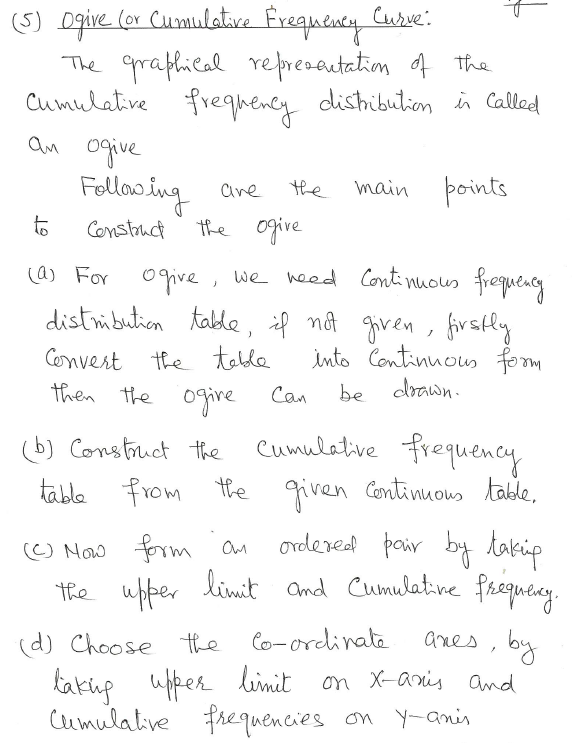 (5) Ogive (or Cumulative Frequency Curve:
The graphical representation of the
Cumulative frequency distribution is Called
an ogive
Following are the main points
to Construct the ogive
(a) For ogive, we need Continuous frequency
distribution table, if not given, firstly
Convert the table into Continuous form
then the ogive Can be drawn.
(b) Construct the Cumulative frequency
table from the given Continuous table.
(c) Now form an ordered pair by taking
the upper limit and Cumulative frequency.
(d) Choose the Co-ordinate axes, by
taking upper limit on X-axis and
Cumulative frequencies on Y-axis